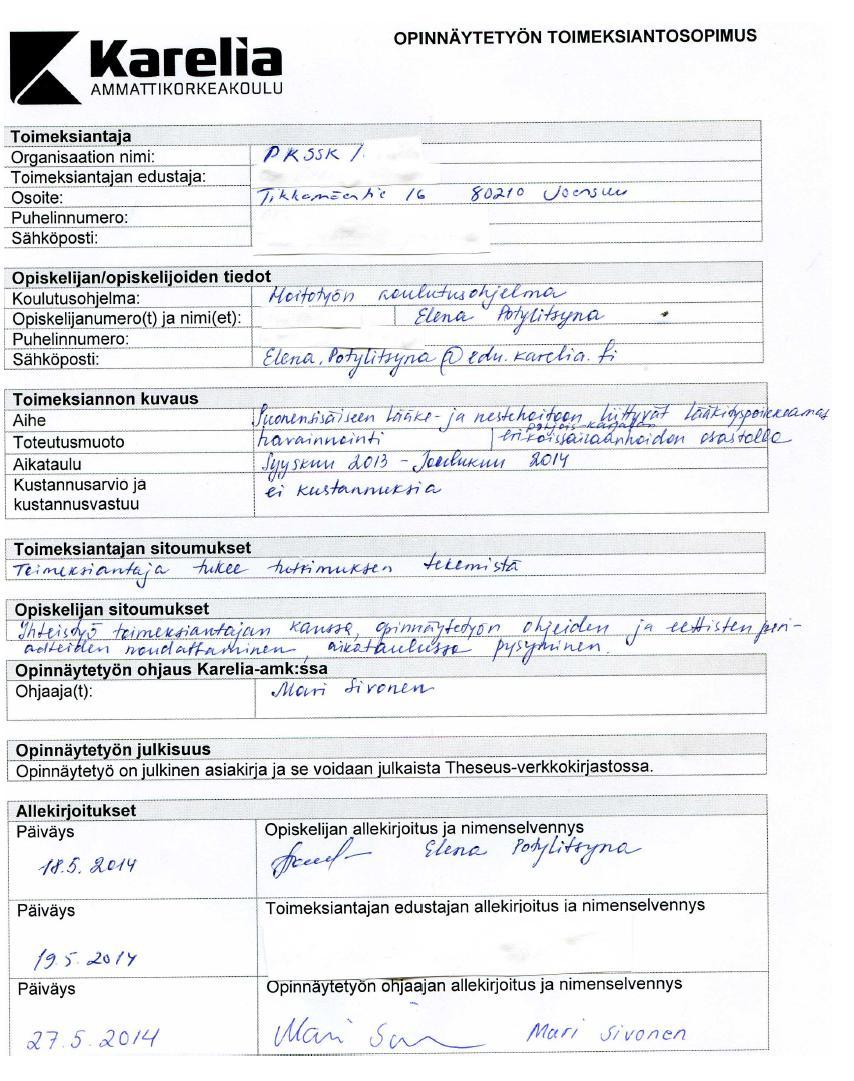 OPINNÄYTETYÖN TOIMEKSIANTOSOPIMUS
Karelia
AMMATTIKORKEAKOULU
Toimeksiantaja
Organisaation nimi: PKSSK /
Toimeksiantajan edustaja:
Osoite: Tikkamäentie 16 80210 Joensuu
Puhelinnumero:
Sähköposti:
Opiskelijan/opiskelijoiden tiedot
Koulutusohjelma: Hoitotyön koulutusohjelma
Opiskelijanumero(t) ja nimi(et): Elena Potylitsyna
Puhelinnumero:
Sähköposti: Elena.Potylitsyna@edu.karelia.fi
Toimeksiannon kuvaus
Aihe Suonensisäiseen lääke- ja nestehoitoon liittyvät lääkityspoikkeamat
Pohjois-Karjalan
Toteutusmuoto havainnointi erikoissairaanhoidon osastolla
Aikataulu Syyskuu 2013 - Joulukuu 2014
Kustannusarvio ja ei kustannuksia
kustannusvastuu
Toimeksiantajan sitoumukset
Toimeksiantaja tukee tutkimuksen tekemistä
Opiskelijan sitoumukset
Yhteistyö toimeksiantajan kanssa, opinnäytetyön ohjeiden ja eettisten peri-
aatteiden noudattaminen, aikataulussa pysyminen.
Opinnäytetyön ohjaus Karelia-amk:ssa
Ohjaaja(t): Mari Sivonen
Opinnäytetyön julkisuus
Opinnäytetyö on julkinen asiakirja ja se voidaan julkaista Theseus-verkkokirjastossa.
Allekirjoitukset
Päiväys Opiskelijan allekirjoitus ja nimenselvennys
18.5.2014 Elena Potylitsyna
Päiväys Toimeksiantajan edustajan allekirjoitus ja nimenselvennys
19.5.2014
Päiväys Opinnäytetyön ohjaajan allekirjoitus ja nimenselvennys
27.5.2014 Mari Mari Sivonen